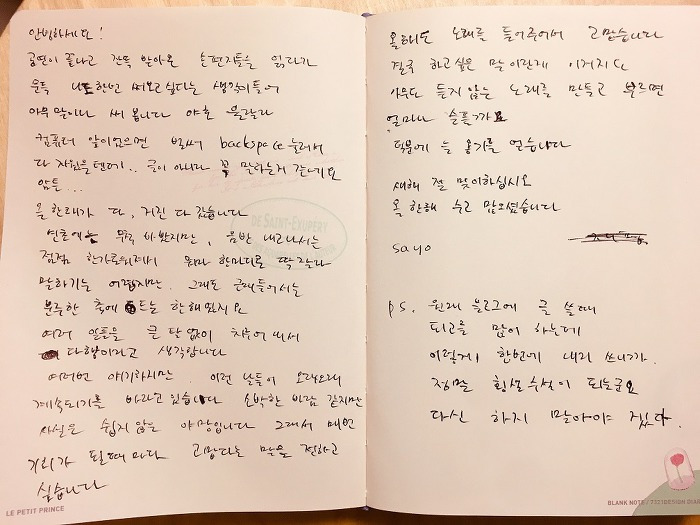 안녕하세요!
공연이 끝나고 잔뜩 받아온 손편지들을 읽다가
문득 나도 한번 써보고 싶다는 생각이 들어
아무 말이나 써 봅니다 야호 블라블라
컴퓨터 앞이었으면 벌써 backspace 눌러서
다 지웠을텐데.. 글이 아니라 꼭 말하는거 같네요
암튼...
올 한해가 다, 거진 다 갔습니다
연초에는 무척 바빴지만, 음반 내고나서는
점점 한가로워져서 뭐라 한마디로 딱 잘라
말하기는 어렵지만. 그래도 근래들어서는
분주한 축에 드는 한해였지요
여러 일들을 큰 탈 없이 치루어 내서
다행이라고 생각합니다
여러번 얘기하지만, 이런 날들이 오래오래
계속되기를 바라고 있습니다 소박한 바람 같지만
사실은 쉽지 않은 야망입니다 그래서 매번
기회가 될 때마다 고맙다는 말을 전하고
싶습니다
DE SAINT-EXUPERY
LE PETIT PRINCE
올해도 노래를 들어주어서 고맙습니다
결국 하고 싶은 말이란게 이거지요
아무도 듣지 않는 노래를 만들고 부르면
얼마나 슬플까요
덕분에 늘 용기를 얻습니다
새해 잘 맞이하십시오
올 한해 수고 많으셨습니다
sayo
ps. 원래 블로그에 글 쓸 때
퇴고를 많이 하는데
이렇게 한번에 내리 쓰니까
정말 횡설수설이 되는군요
다신 하지 말아야 겠다.
BLANK NOTE / 7321DESIGN DIAR